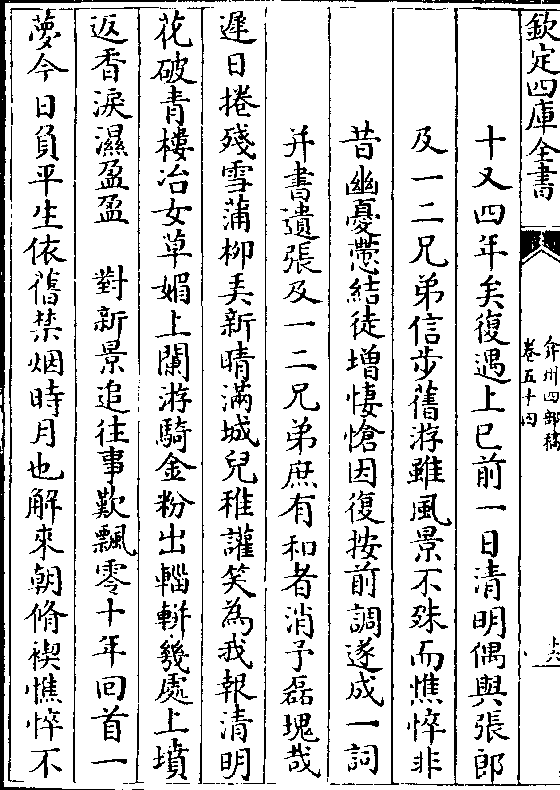 欽定四庫全書
弇州四部稿
卷五十四
十六
十又四年矣復遇上巳前一日清明偶與張郎
及一二兄弟信步舊游雖風景不殊而憔悴非
昔幽憂懣結徒增悽愴因復按前調遂成一詞
并書遺張及一二兄弟庶有和者消予磊塊哉
遲日捲殘雪蒲柳弄新晴滿城兒稚讙笑為我報清明
花破青樓冶女草媚上闌游騎金粉出輜軿幾處上墳
返香淚濕盈盈　對新景追往事歎飄零十年回首一
夢今日負平生依舊禁烟時月也解來朝脩禊憔悴不